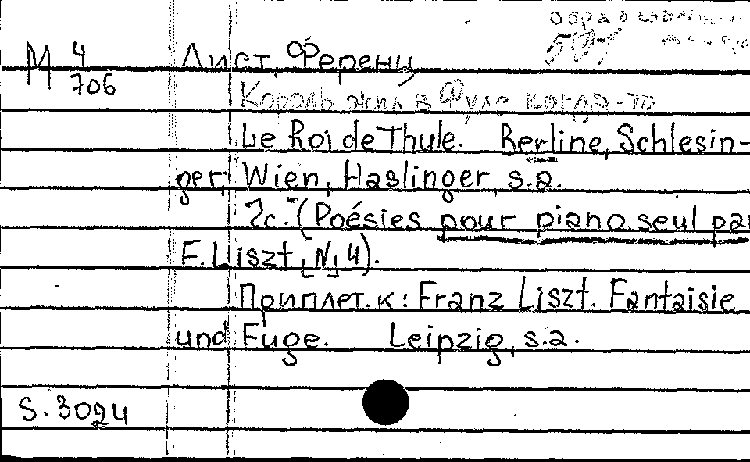 М 4/706
Лист, Ференц
Король жил в Фуле когда-то
Le Roi de Thule. Berline, Schlesin-
ger, Wien, Haslinger, s.a.
7с. (Poésies pour piano seul par
F. Liszt, [N] 4).
Приплет. к: Franz Liszt. Fantaisie
und Fuge. Leipzig, s.a.
S. 3024